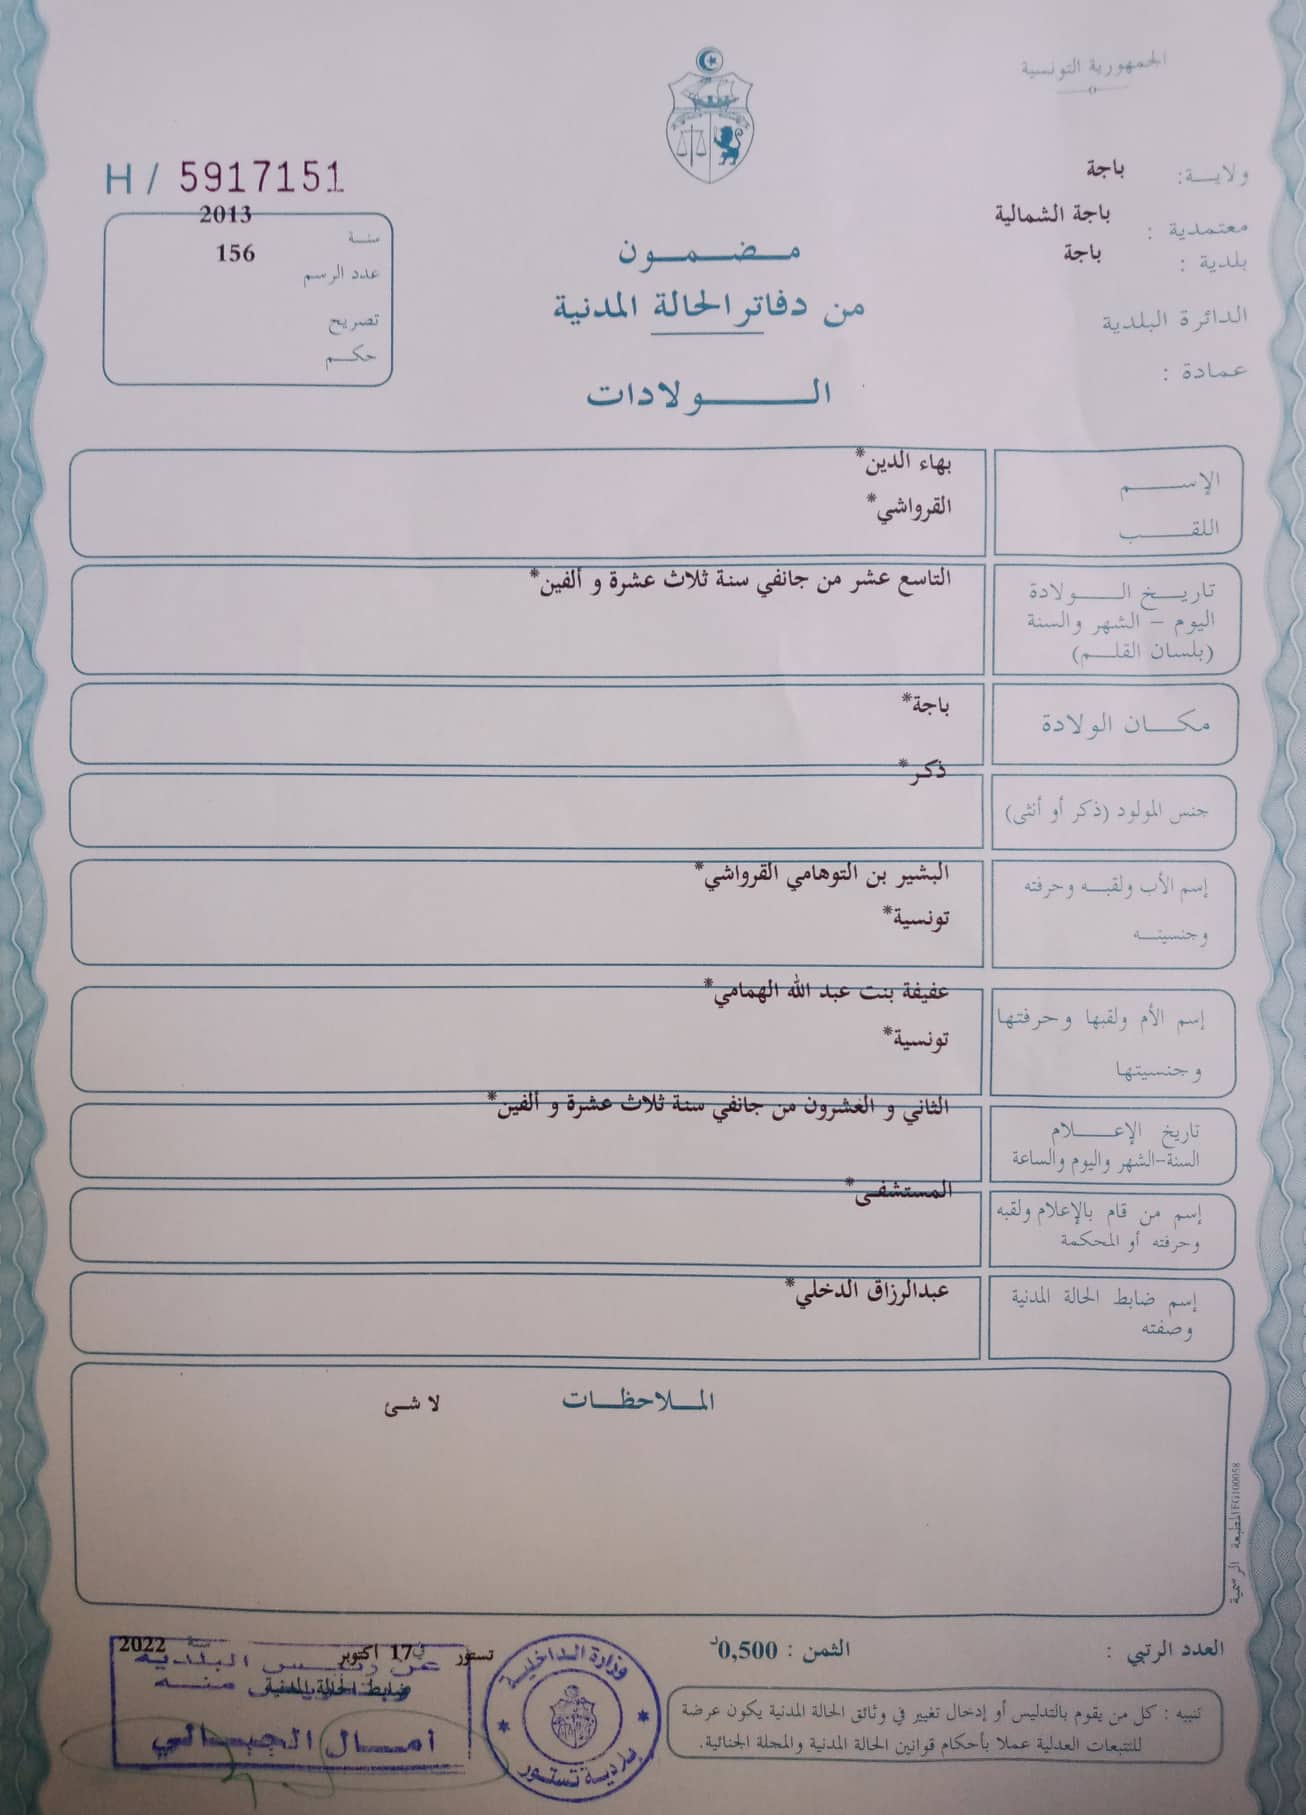 الجمهورية التونسية
ولايـــة: باجة
معتمدية : باجة الشمالية
بلدية : باجة
الدائرة البلدية
عمادة :
H / 5917151
سنـة 2013
عدد الرسم 156
تصريح
حكـــم
مــضــمــون
من دفاتر الحالة المدنية
الــــولادات
الإســـــم بهاء الدين*
اللقـــــب القرواشي*
تاريــخ الـــولادة التاسع عشر من جانفي سنة ثلاث عشرة و ألفين*
اليوم – الشهر والسنة
(بلسان القلــم)
مكـــان الولادة باجة*
جنس المولود (ذكر أو أنثى) ذكر*
إسم الأب ولقبــه وحرفته البشير بن التوهامي القرواشي*
وجنسيتـــه تونسية*
إسم الأم ولقبها وحرفتها عفيفة بنت عبد الله الهمامي*
وجنسيتها تونسية*
تاريخ الإعـــــلام الثاني و العشرون من جانفي سنة ثلاث عشرة و ألفين*
السنة-الشهر واليوم والساعة
إسم من قام بالإعلام ولقبه المستشفى*
وحرفته أو المحكمة
إسم ضابط الحالة المدنية عبدالرزاق الدخلي*
وصفته
المـــلاحظـــات لا شئ
المطبعة الرسمية FG100058
العدد الرتبي : الثمن : 0,500د
تستور في 17 اكتوبر سنة 2022
ضابط الحالة المدنية
عن رئيــس البلديـة
وبتفويــض منــه
امـــال الجبـــالي
وزارة الداخلية
بلدية تستور
تنبيه : كل من يقوم بالتدليس أو إدخال تغيير في وثائق الحالة المدنية يكون عرضة
للتتبعات العدلية عملا بأحكام قوانين الحالة المدنية والمجلة الجنائية.